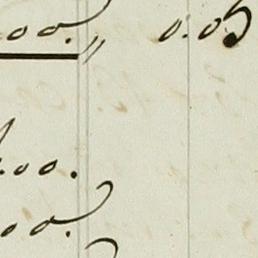 .00. 〃 0.05
.00.
00.